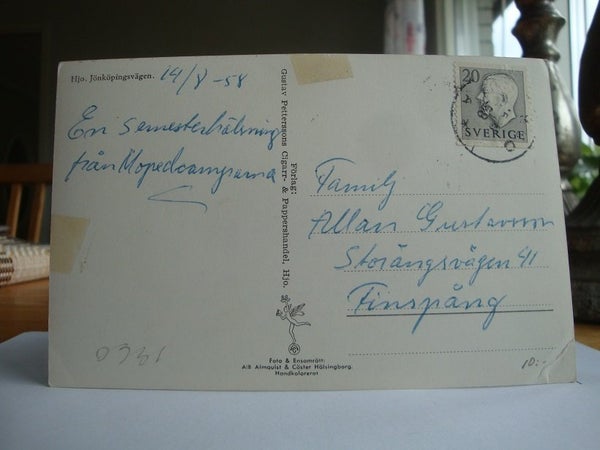 Hjo. Jönköpingsvägen.
14/8 -58
En semesterhälsning
från Mopedcamparna
Förlag:
Gustav Petterssons Cigarr- & Pappershandel, Hjo.
20
SVERIGE
Familj
Allan Gustavsson
Storängsvägen 41
Finspång
Foto & Ensamrätt:
A/B Almquist & Cöster Hälsingborg.
Handkolorerat
0331
10:-